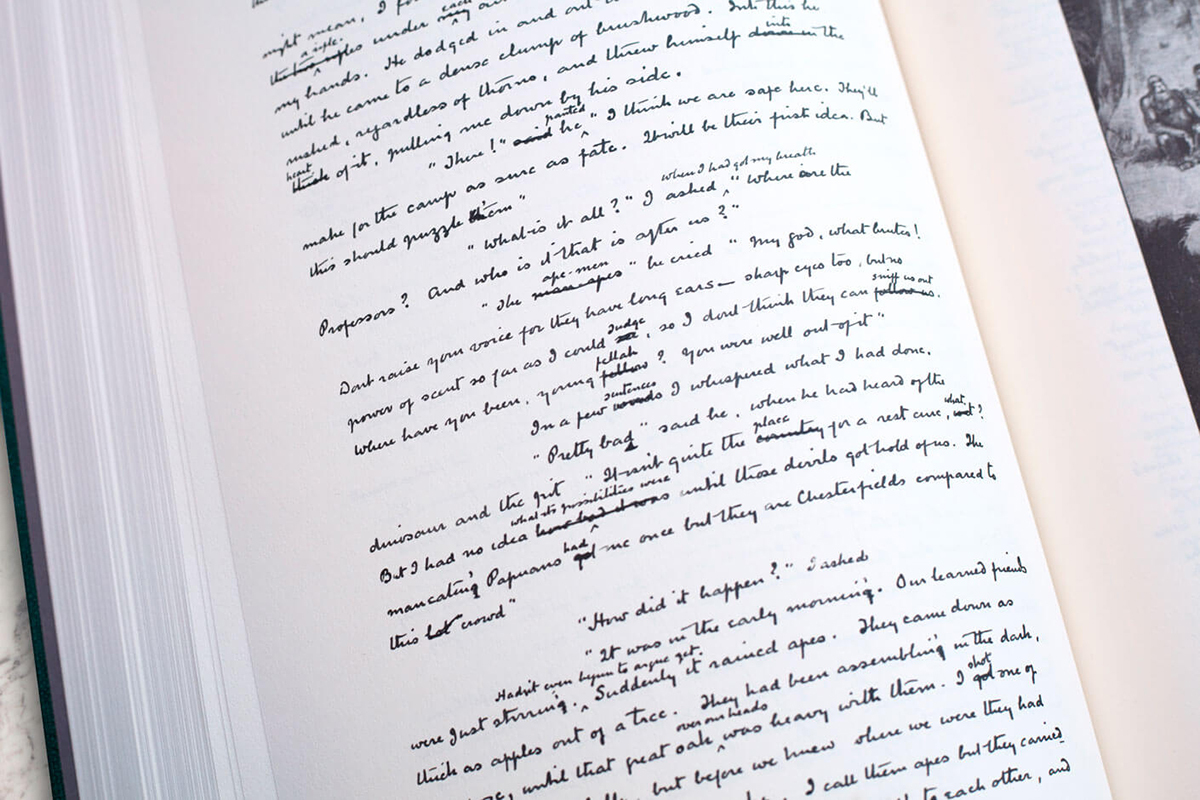 might mean, I
the two rifles a rifle. under each my
my hands. He dodged in and out
until he came to a dense clump of brushwood. Into this he
rushed, regardless of thorns, and threw himself down in into the
thick heart of it, pulling me down by his side.
"There!" said panted he "I think we are safe here. They'll
make for the camp as sure as fate. It will be their first idea. But
this should puzzle 'em"
"What is it all?" I asked when I had got my breath "Where are the
Professors? And who is it that is after us?"
"The man-apes ape-men" he cried "My god, what brutes!
Dont raise your voice for they have long ears — sharp eyes too, but no
power of scent so far as I could see judge, so I dont think they can follow us sniff us out.
Where have you been, young fellow fellah? You were well out of it"
In a few words sentences I whispered what I had done.
"Pretty bad" said he, when he had heard of the
dinosaur and the pit "It isn't quite the country place for a rest cure, what?
But I had no idea how bad it was what its possibilities were until those devils got hold of us. The
maneating Papuans got had me once but they are Chesterfields compared to
this lot crowd"
"How did it happen?" I asked
"It was in the early mornin'. Our learned friends
were just stirrin'. Hadn't even begun to argue yet. Suddenly it rained apes. They came down as
thick as apples out of a tree. They had been assemblin' in the dark,
until that great oak over our heads was heavy with them. I got shot one of
but before we knew where we were they had
I call them apes but they carried
to each other, and